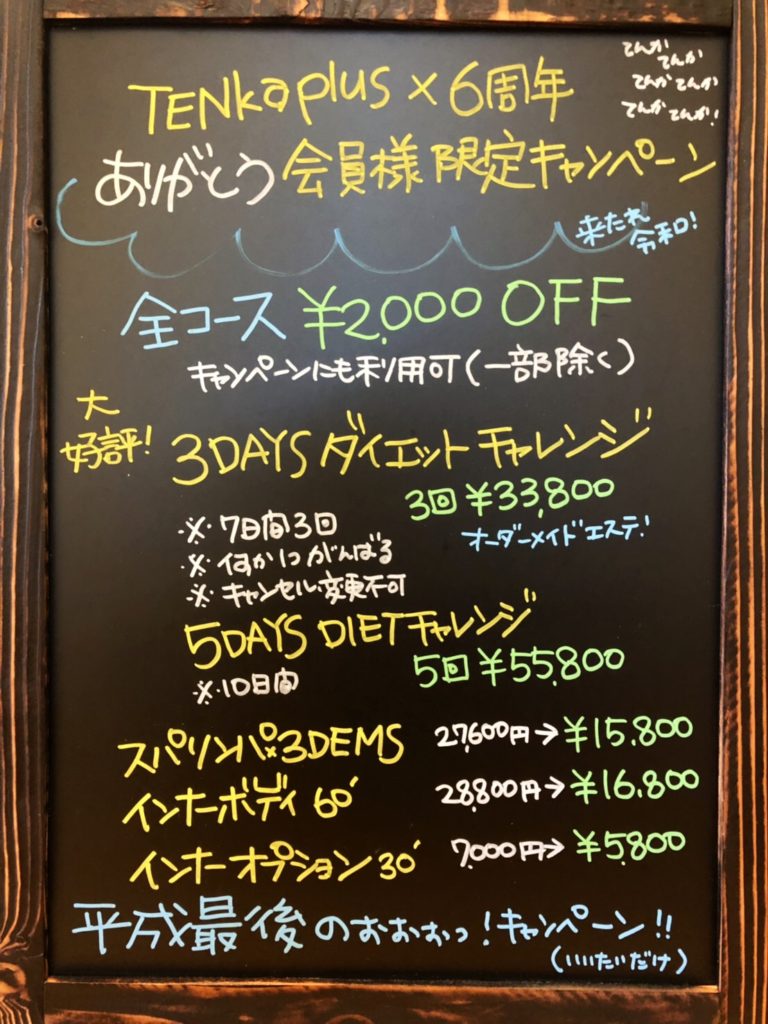 てんか
てんか
てんか てんか
てんか てんか!
TENKaplus × 6周年
ありがとう 会員様 限定キャンペーン
来たれ
令和!
全コース ¥2,000 OFF
キャンペーンにも利用可(一部除く)
大
好評!
3DAYS ダイエット チャレンジ
3回 ¥33,800
オーダーメイド エステ!
※ 7日間3回
※ 何かにがんばる
※ キャンセル・変更不可
5DAYS DIET チャレンジ
5回 ¥55,800
※10日間
スパリンパ×3DEMS 27,600円→¥15,800
インナーボディ 60′ 28,800円→¥16,800
インナーオプション 30′ 7,000円→¥5,800
平成最後のおおおっ!キャンペーン!!
(いいたいだけ)